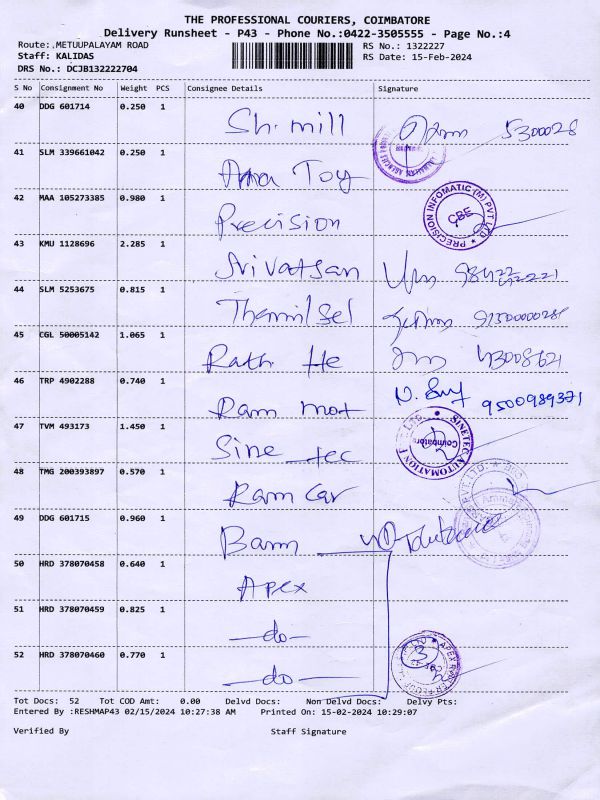 THE PROFESSIONAL COURIERS, COIMBATORE
Delivery Runsheet - P43 - Phone No.:0422-3505555 - Page No.:4
Route:.METUUPALAYAM ROAD RS No.: 1322227
Staff: KALIDAS RS Date: 15-Feb-2024
DRS No.: DCJB132222704
S No Consignment No Weight PCS Consignee Details Signature
40 DDG 601714 0.250 1 Sh. mill 5300028
41 SLM 339661042 0.250 1 Toy
42 MAA 105273385 0.980 1 Precision PRECISION INFOMATIC (M) PVT LTD CBE
43 KMU 1128696 2.285 1 Srivatsan
44 SLM 5253675 0.815 1 Thamil Sel
45 CGL 50005142 1.065 1 Rath He 43008621
46 TRP 4902288 0.740 1 Ram mot 9500989371
47 TVM 493173 1.450 1 Sine tec SINETEC AUTOMATION Coimbatore
48 TMG 200393897 0.570 1 Ram Car
49 DDG 601715 0.960 1 Bann
50 HRD 378070458 0.640 1 Apex
51 HRD 378070459 0.825 1 -do-
52 HRD 378070460 0.770 1 -do-
Tot Docs: 52 Tot COD Amt: 0.00 Delvd Docs: Non Delvd Docs: Delvy Pts:
Entered By :RESHMAP43 02/15/2024 10:27:38 AM Printed On: 15-02-2024 10:29:07
Verified By Staff Signature